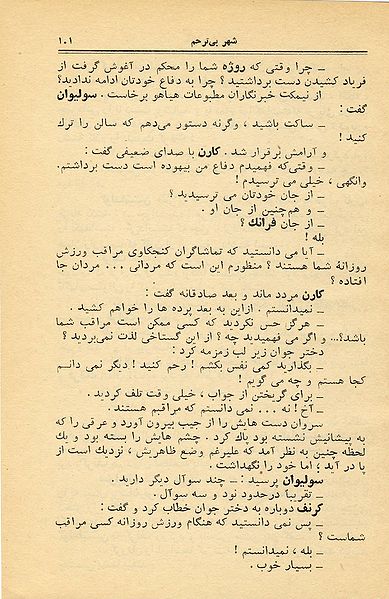 شهر بی‌ترحم ۱۰۱
ـ چرا وقتی که روژه شما را محکم در آغوش گرفت از
فریاد کشیدن دست برداشتید ؟ چرا به دفاع خودتان ادامه ندادید؟
از نیمکت خبرنگاران مطبوعات هیاهو برخاست . سولیوان
گفت :
ـ ساکت باشید ، وگرنه دستور می‌دهم که سالن را ترك
کنید !
و آرامش برقرار شد . کارن با صدای ضعیفی گفت :
ـ وقتی‌که فهمیدم دفاع من بیهوده است دست برداشتم.
وانگهی ، خیلی می ترسیدم !
ـ از جان خودتان می ترسیدید ؟
ـ و هم‌چنین از جان او .
ـ از جان فرانك ؟
بله !
ـ آیا می دانستید که تماشاگران کنجکاوی مراقب ورزش
روزانهٔ شما هستند ؟ منظورم این است که مردانی ... مردان جا
افتاده ؟
کارن مردد ماند و بعد صادقانه گفت :
ـ نمیدانستم . ازاین به بعد پرده ها را خواهم کشید .
ـ هرگز حس نکردید که کسی ممکن است مراقب شما
باشد؟... و اگر می فهمیدید چه ؟ از این گستاخی لذت نمی‌بردید ؟
دختر جوان زیر لب زمزمه کرد :
ـ بگذارید کمی نفس بکشم ! رحم کنید ! دیگر نمی دانــم
کجا هستم و چه می گویم !
ـ برای گریختن از جواب ، خیلی وقت تلف کردید .
ـ آخ ! نه ... نمی دانستم که مراقبم هستند .
سروان دست هایش را از جیب بیرون آورد و عرقی را که
به پیشانیش نشسته بود پاك کرد . چشم هایش را بسته بود و یك
لحظه چنین به نظر آمد که علیرغم وضع ظاهریش ، نزدیك است از
پا در آید ؛ اما خود را نگهداشت .
سولیوان پرسید : ـ چند سوآل دیگر دارید .
ـ تقریبا درحدود نود و سه سوآل .
کرنف دوباره به دختر جوان خطاب کرد و گفت :
ـ پس نمی دانستید که هنگام ورزش روزانه کسی مراقب
شماست ؟
ـ بله ، نمیدانستم !
ـ بسیار خوب .